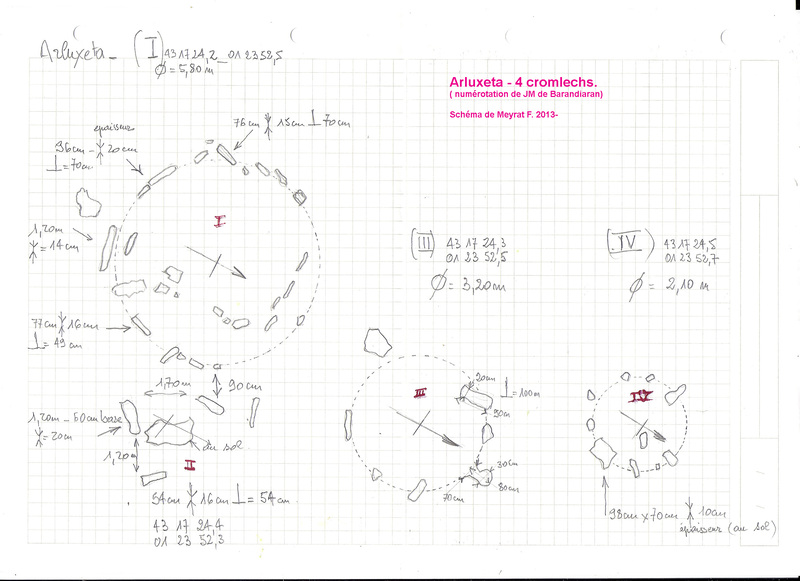 Arluxeta - ( I ) 43 17 24,2 _ 01 23 52,5
Ø = 5,80 m
Arluxeta - 4 cromlechs.
( numérotation de JM de Barandiaran)
Schéma de Meyrat F. 2013-
épaisseur
96cm - 20cm
⊥ = 70cm
76cm 15cm ⊥ 70cm
I
1,20m
= 14cm
77cm 16cm
⊥ = 49cm
(III) 43 17 24,3
01 23 52,5
Ø = 3,20m
(IV) 43 17 24,5
01 23 52,7
Ø = 2,10 m
1,70m
90cm
1,20m - 50cm base
= 20cm
1,20m
au sol
II
54cm 16cm ⊥ = 54cm
43 17 24,4
01 23 52,3
III
20cm
⊥ = 100cm
90cm
30cm
80cm
70cm
IV
98cm x 70cm 10cm
épaisseur (au sol)